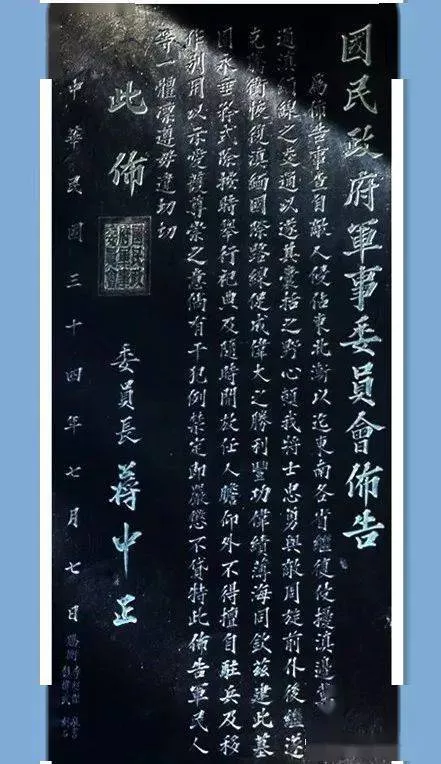 國民政府軍事委員會佈告
為佈告事查自敵人侵佔東北漸以迄東南各省繼復侵擾滇邊冀
通滇緬線之交通以遂其囊括之野心賴我將士忠勇與敵周旋前仆後繼遂
克騰衝恢復滇緬國際路線促成偉大之勝利豐功偉績薄海同欽茲建此墓
園永垂矜式除按時舉行祀典及隨時開放任人瞻仰外不得擅自駐兵及移
作別用以示愛護尊崇之意倘有干犯例禁定即嚴懲不貸特此佈告軍民人
等一體懍遵毋違切切
此佈
委員長 蔣中正
中華民國三十四年七月七日
騰衝